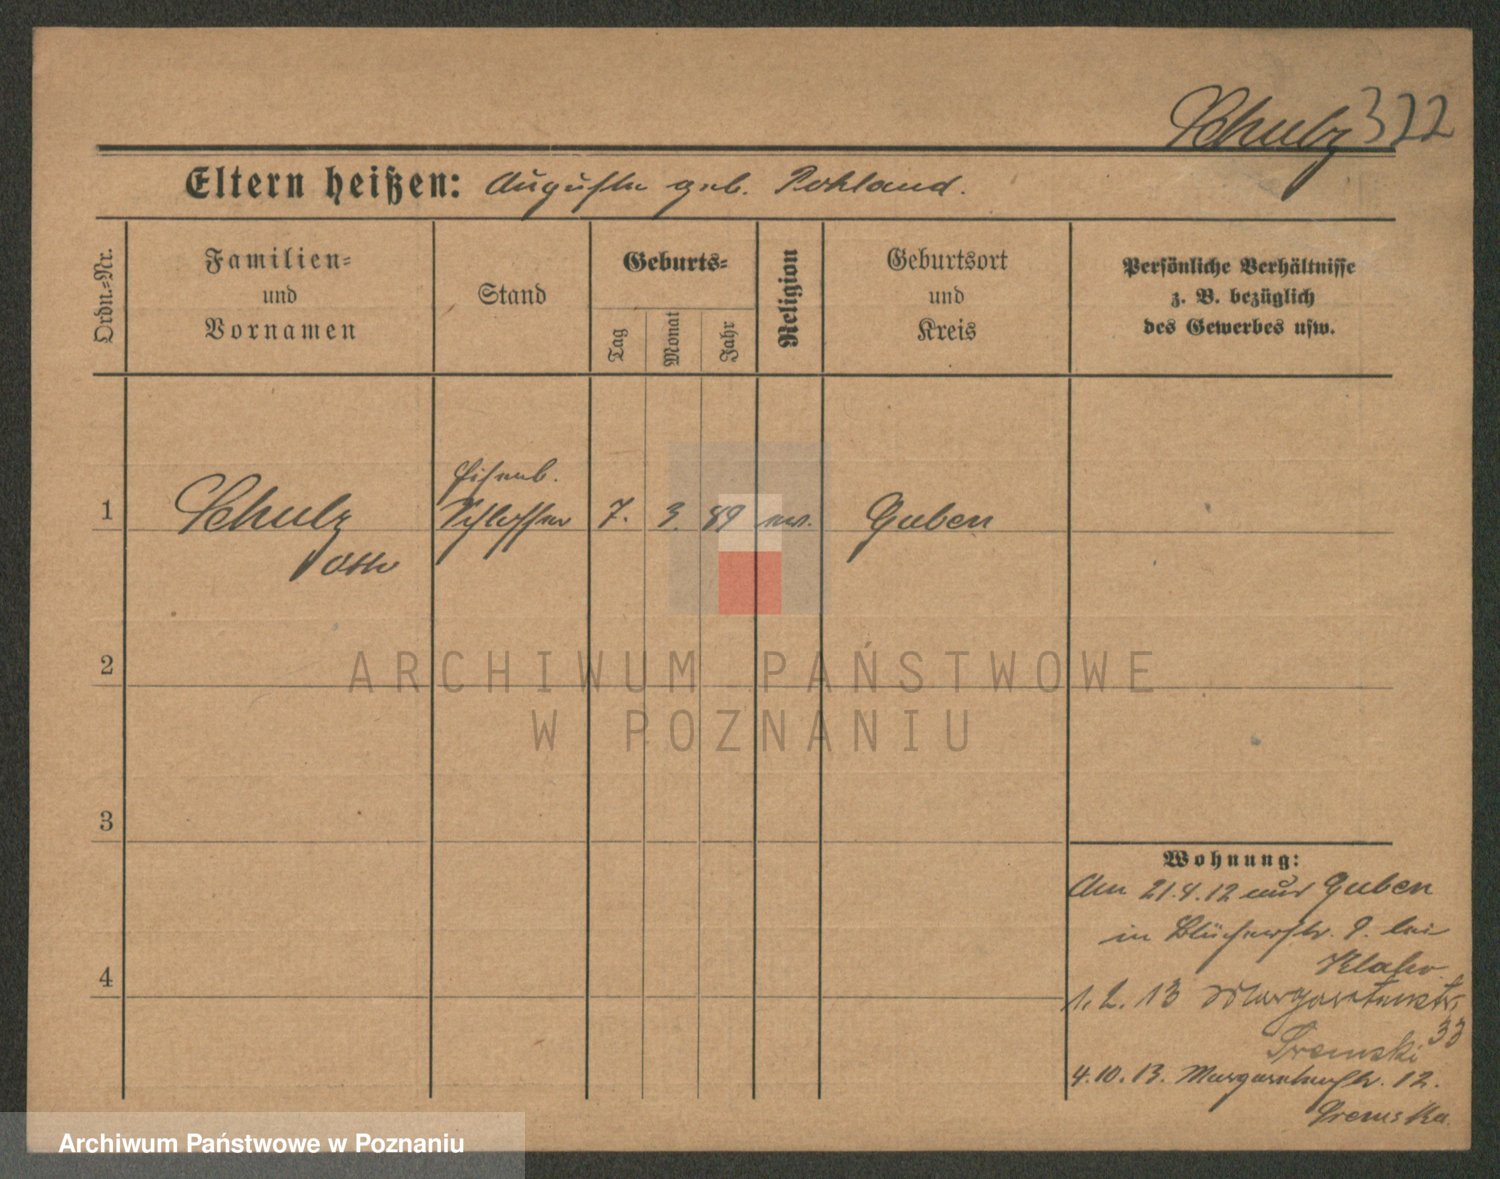 Schulz 322
Eltern heißen: Auguste geb. Pohland.
Ordn.-Nr.
Familien-
und
Vornamen
Stand
Geburts-
Tag
Monat
Jahr
Religion
Geburtsort
und
Kreis
Persönliche Verhältnisse
z. B. bezüglich
des Gewerbes usw.
Eisenb.
1 Schulz Schlosser 7. 3. 89 ev. Guben
Otto
2
3
4
Wohnung:
Am 21.4.12 aus Guben
in Blücherstr. 9. bei
1.2.13 Margaretenstr.
33
Sremski
4.10.13. Margaretenstr. 12.
Sremska.
ARCHIWUM PAŃSTWOWE
W POZNANIU
Archiwum Państwowe w Poznaniu